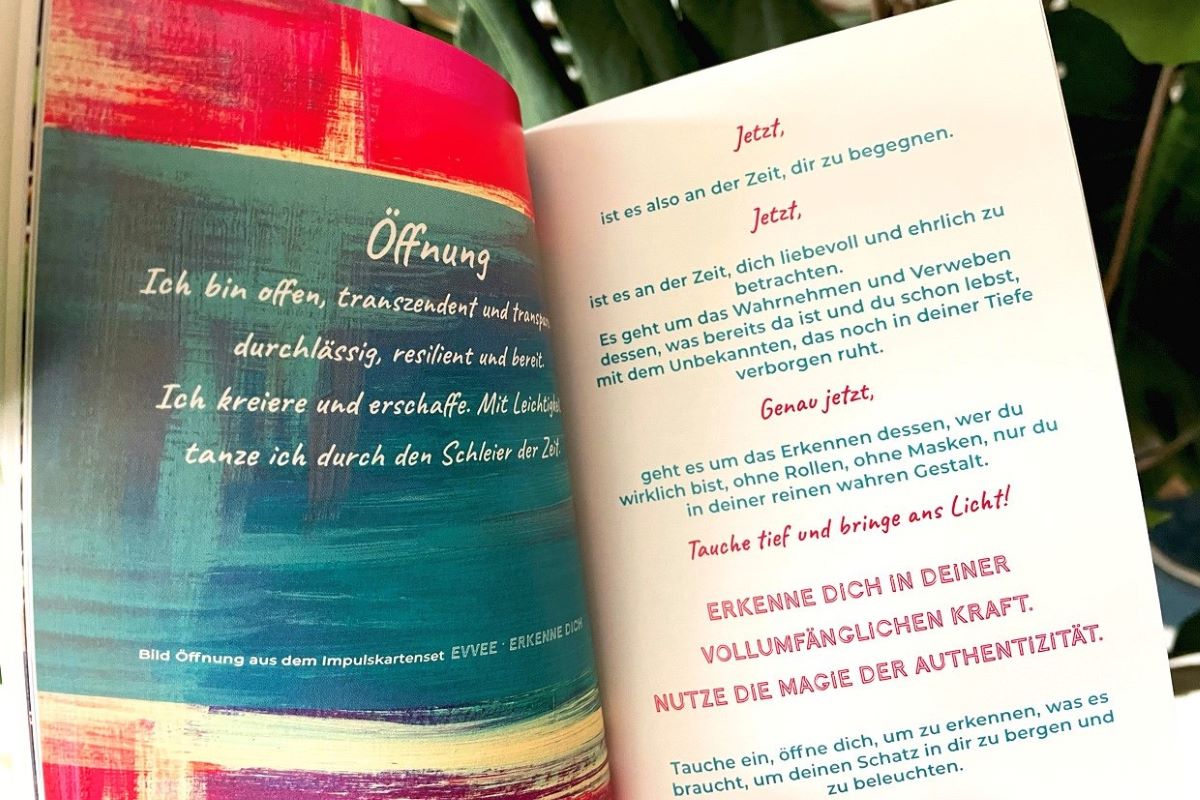 Öffnung
Ich bin offen, transzendent und
durchlässig, resilient und bereit.
Ich kreiere und erschaffe. Mit
tanze ich durch den Schleier der Zeit.
Bild Öffnung aus dem Impulskartenset EVVEE · ERKENNE DICH
Jetzt,
ist es also an der Zeit, dir zu begegnen.
Jetzt,
ist es an der Zeit, dich liebevoll und ehrlich zu
betrachten.
Es geht um das Wahrnehmen und Verweben
dessen, was bereits da ist und du schon lebst,
mit dem Unbekannten, das noch in deiner Tiefe
verborgen ruht.
Genau jetzt,
geht es um das Erkennen dessen, wer du
wirklich bist, ohne Rollen, ohne Masken, nur du
in deiner reinen wahren Gestalt.
Tauche tief und bringe ans Licht!
ERKENNE DiCH iN DEiNER
VOLLUMFÄNGLiCHEN KRAFT.
NUTZE DiE MAGiE DER AUTHENTiZiTÄT.
Tauche ein, öffne dich, um zu erkennen, was es
braucht, um deinen Schatz in dir zu bergen und
zu beleuchten.